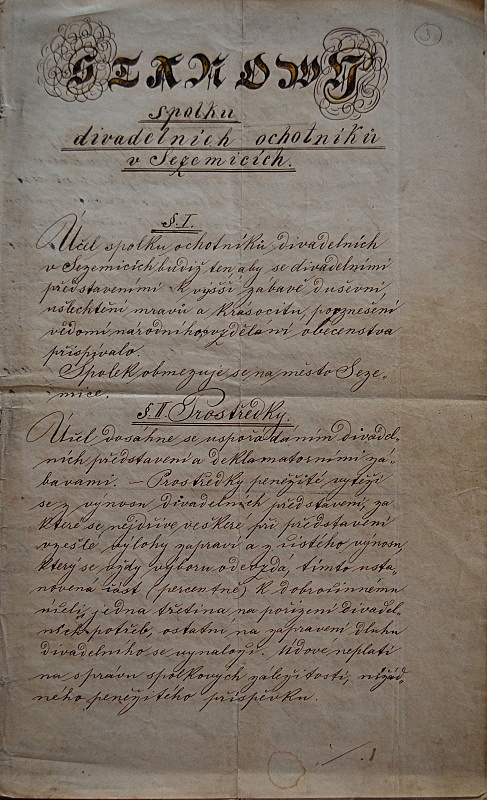 1
STANOWY
spolku
divadelních ochotníků
v Sezemicích.
§. I.
Účel spolku ochotníků divadelních
v Sezemicích budiž ten, aby se divadelními
představeními k vyšší zábavě duševní
ušlechtění mravů a krásocitu, povznešení
vědomí národního, vzdělání obecenstva
přispívalo.
Spolek obmezuje se na město Seze-
mice.
§. II Prostředky.
Účel dosáhne se uspořádáním divadel-
ních představení a deklamatorními zá-
bavami. – Prostředky peněžité vytěží
se z výnosu divadelních představení, za
které se nejdříve veškeré při představení
vzešlé výlohy zapraví a z čistého výnosu,
který se vždy výboru odevzdá, tímto usta-
novená část (percentně) k dobročinnému
účeli, jedna třetina na pořízení divadel-
ních potřeb, ostatní na zapravení dluhu
divadelního se vynaloží. Údové neplatí
na správu spolkových záležitostí, nižád-
ného peněžitého příspěvku.
./. 1